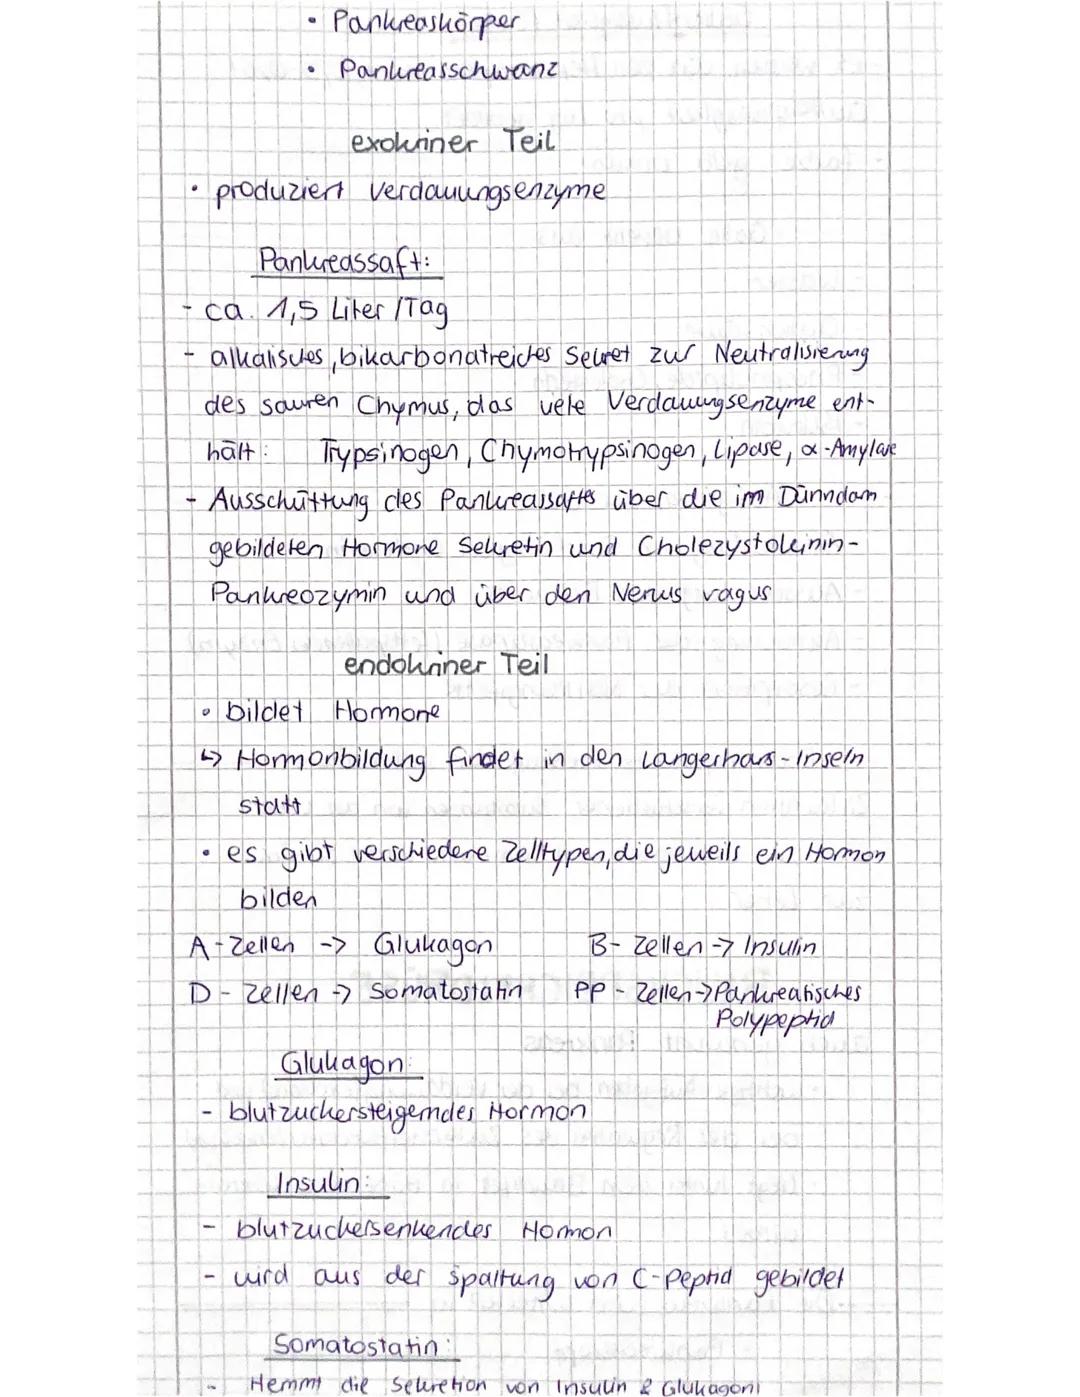 • Pankreaskörper
• Pankreasschwanz
exokriner Teil
• produziert Verdauungsenzyme
Pankreassaft:
- ca. 1,5 Liter /Tag
- alkalisches, bikarbonatreiches Sekret zur Neutralisierung
des sauren Chymus, das viele Verdauungsenzyme ent-
hält: Trypsinogen, Chymotrypsinogen, Lipase, α-Amylase
- Ausschüttung des Pankreassaftes über die im Dünndarm
gebildeten Hormone Sekretin und Cholezystokinin-
Pankreozymin und über den Nervus vagus
endokriner Teil
• bildet Hormone
↳ Hormonbildung findet in den Langerhans-Inseln
statt
• es gibt verschiedene Zelltypen, die jeweils ein Hormon
bilden
A-Zellen -> Glukagon B- Zellen -> Insulin
D - Zellen -> Somatostatin PP - Zellen -> Pankreatisches
Polypeptid
Glukagon:
- blutzuckersteigerndes Hormon
Insulin:
- blutzuckersenkendes Hormon
- wird aus der Spaltung von C-Peptid gebildet
Somatostatin:
- Hemmt die Sekretion von Insulin & Glukagon